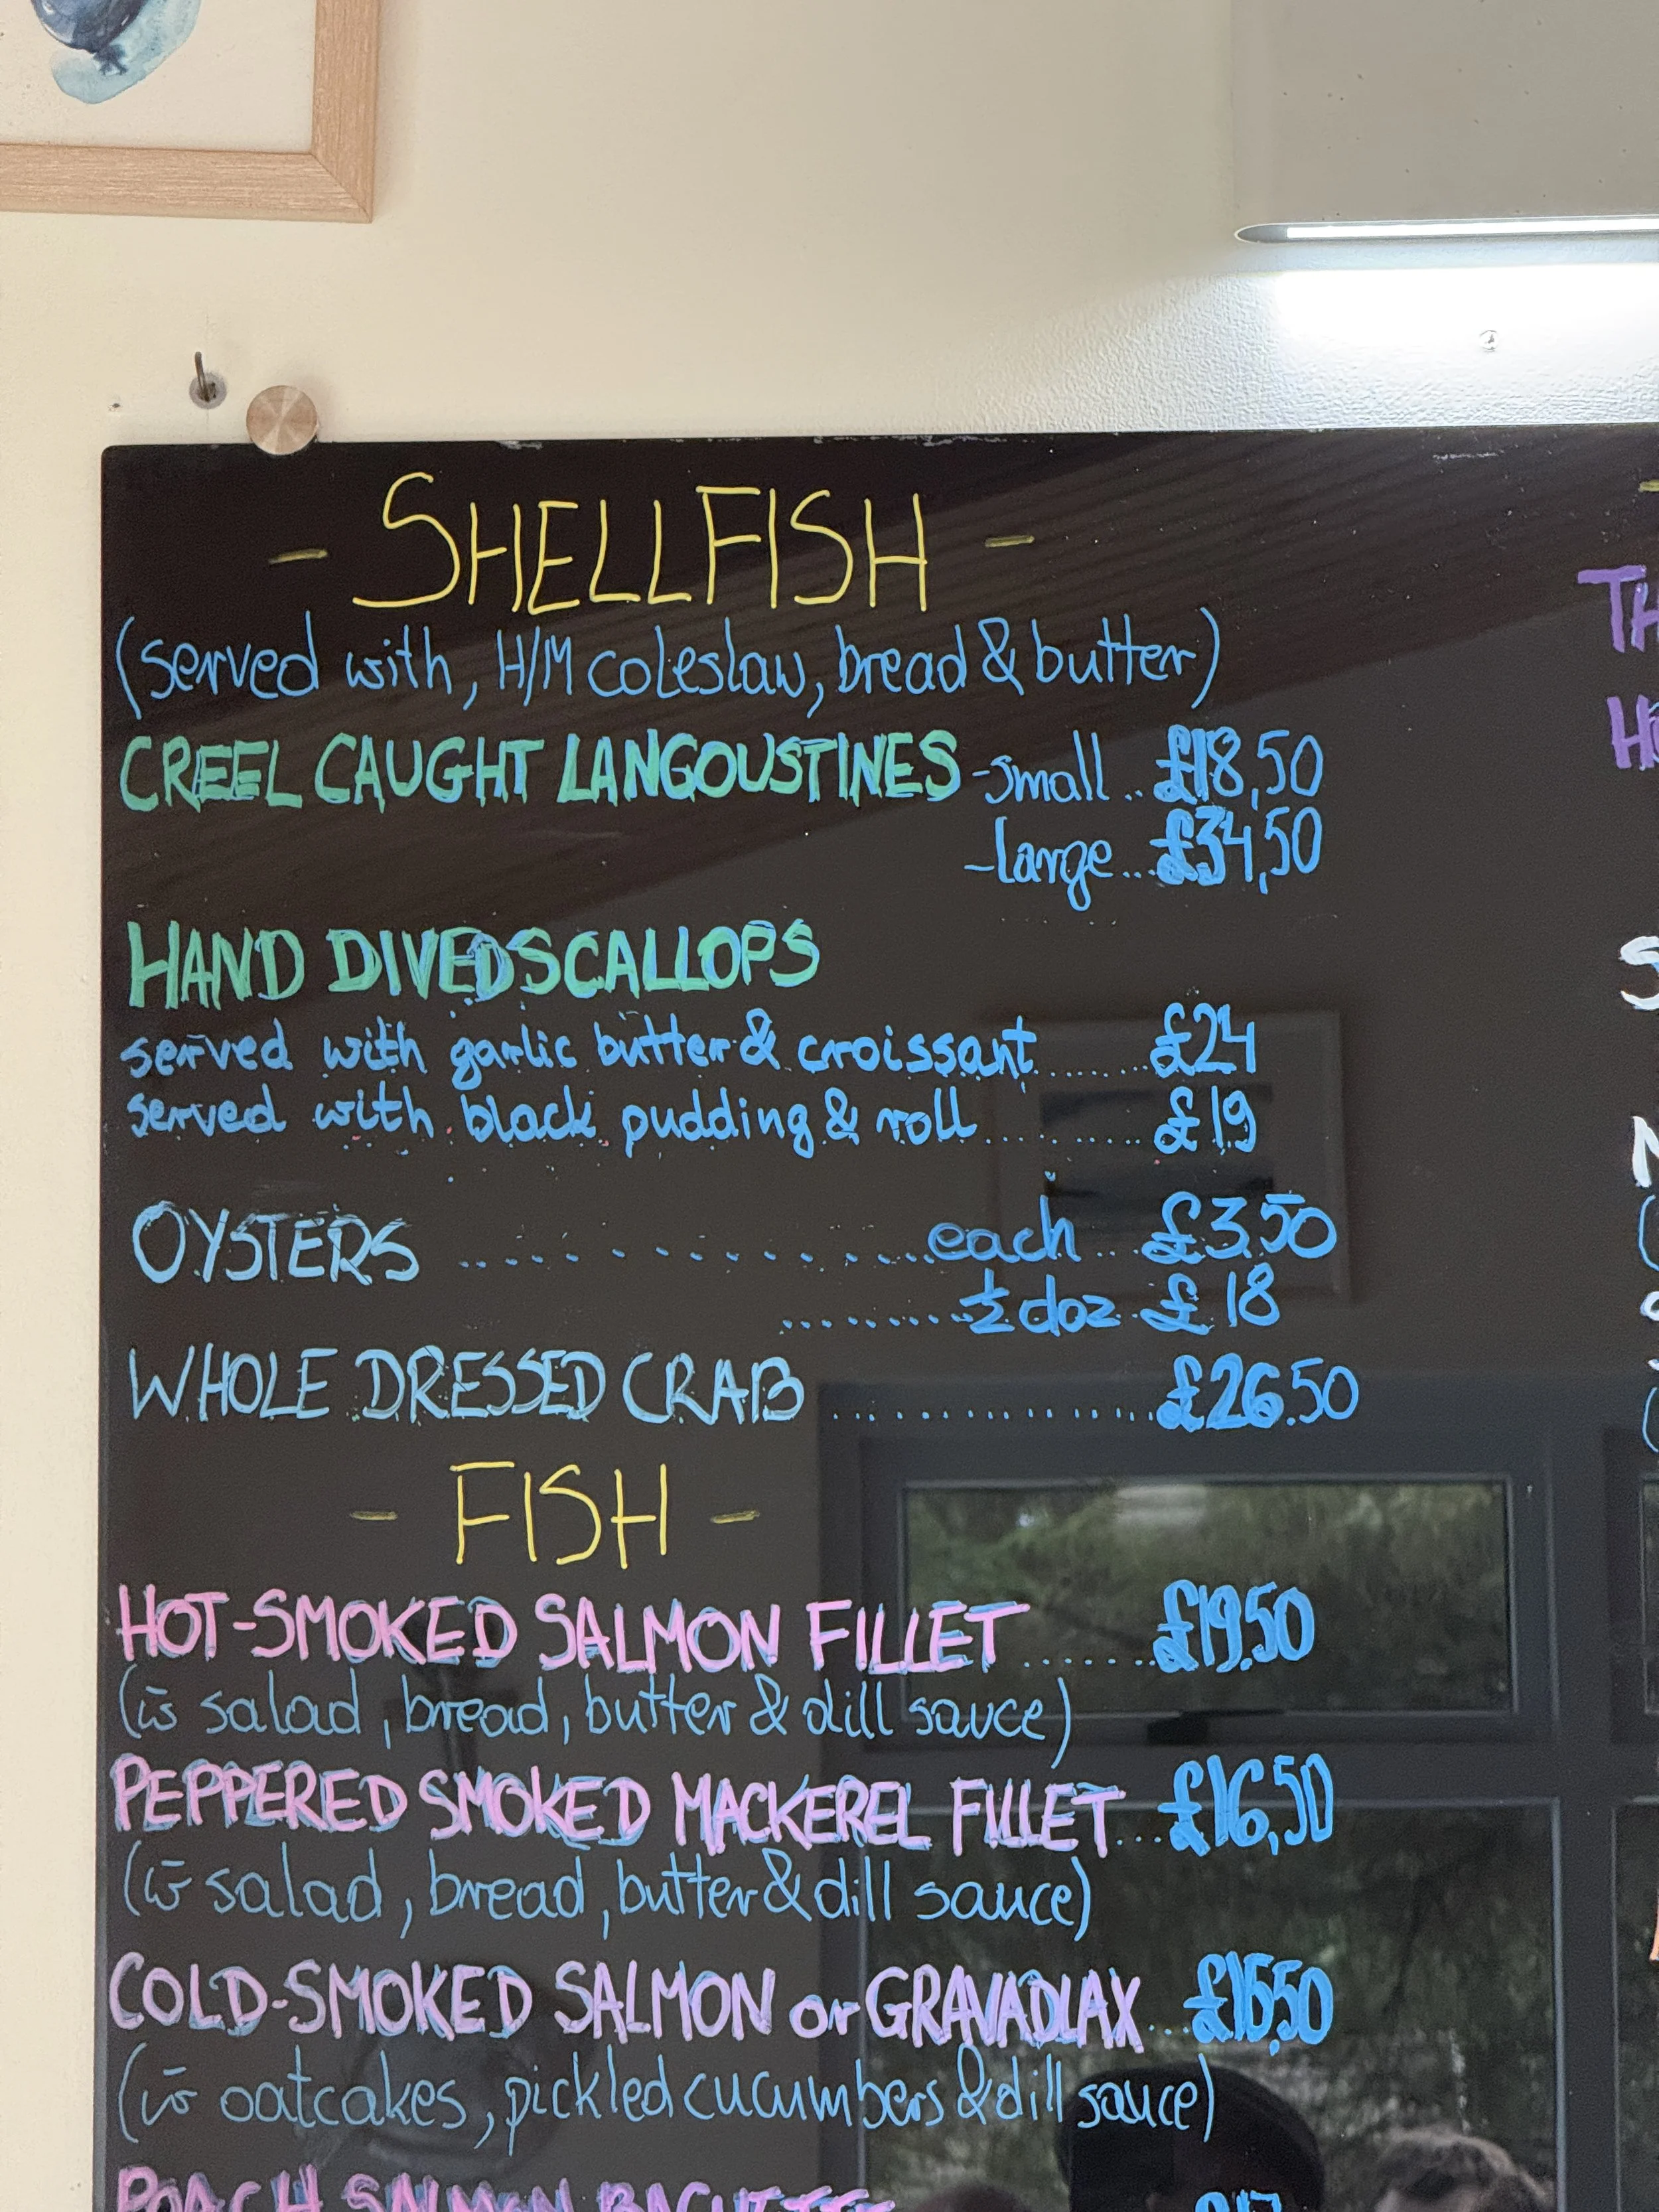 - SHELLFISH -
(served with, H/M coleslaw, bread & butter)
CREEL CAUGHT LANGOUSTINES -small .. £18,50
-large... £34,50
HAND DIVED SCALLOPS
served with garlic butter & croissant ........ £24
served with black pudding & roll .......... £19
OYSTERS .................. each ... £3.50
......... ½ doz .. £18
WHOLE DRESSED CRAB ............... £26.50
- FISH -
HOT-SMOKED SALMON FILLET ....... £19.50
(w̄ salad, bread, butter & dill sauce)
PEPPERED SMOKED MACKEREL FILLET ... £16,50
(w̄ salad, bread, butter & dill sauce)
COLD-SMOKED SALMON or GRAVADLAX ... £15,50
(w̄ oatcakes, pickled cucumbers & dill sauce)
POACH SALMON BAGUETTE
TH
S